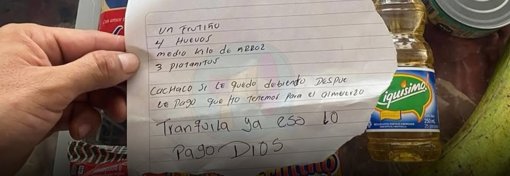 UN FRUTIÑO
4 HUEVOS
MEDIO KILO DE ARROZ
3 PLATANITOS
CACHACO SI LE QUEDO DEBIENDO DESPUE
LE PAGO QUE NO TENEMOS PARA EL ALMUERZO
TRANQUILA YA ESO LO
PAGO DIOS
iquisimo